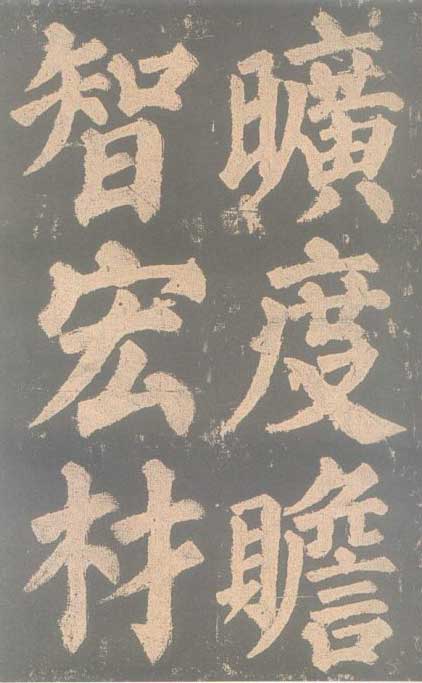 曠度贍
智宏材